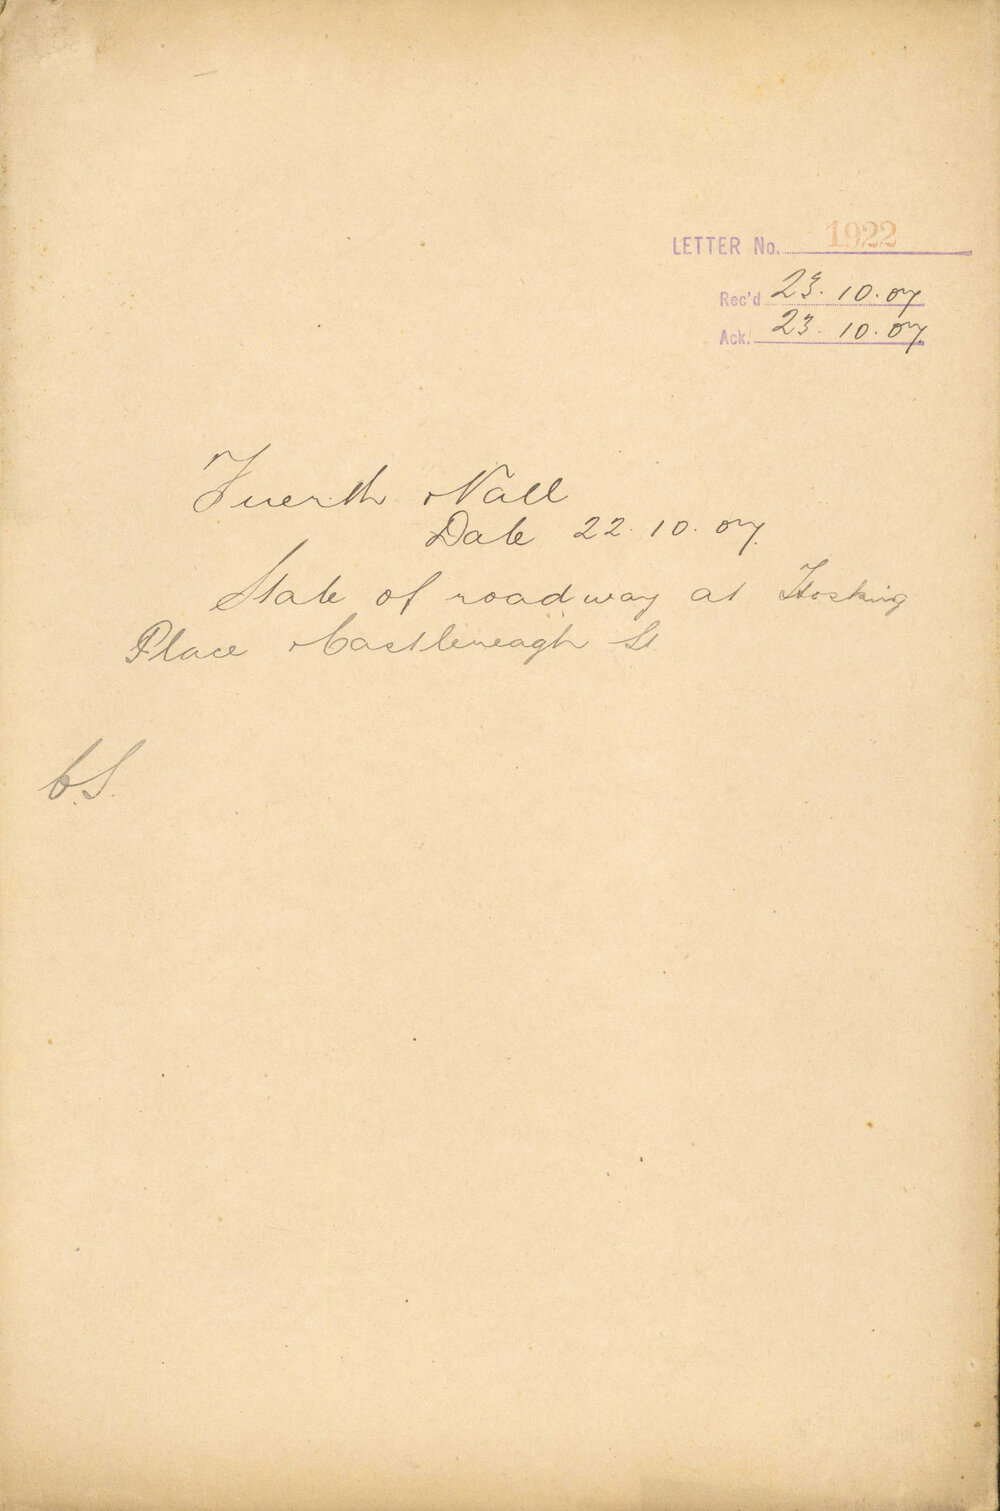 LETTER No. 1922
Rec'd 23.10.07
Ack. 23.10.07
Fuerth & Nall
Date 22.10.07
State of roadway at Hosking
Place Castlereagh St
C.S.